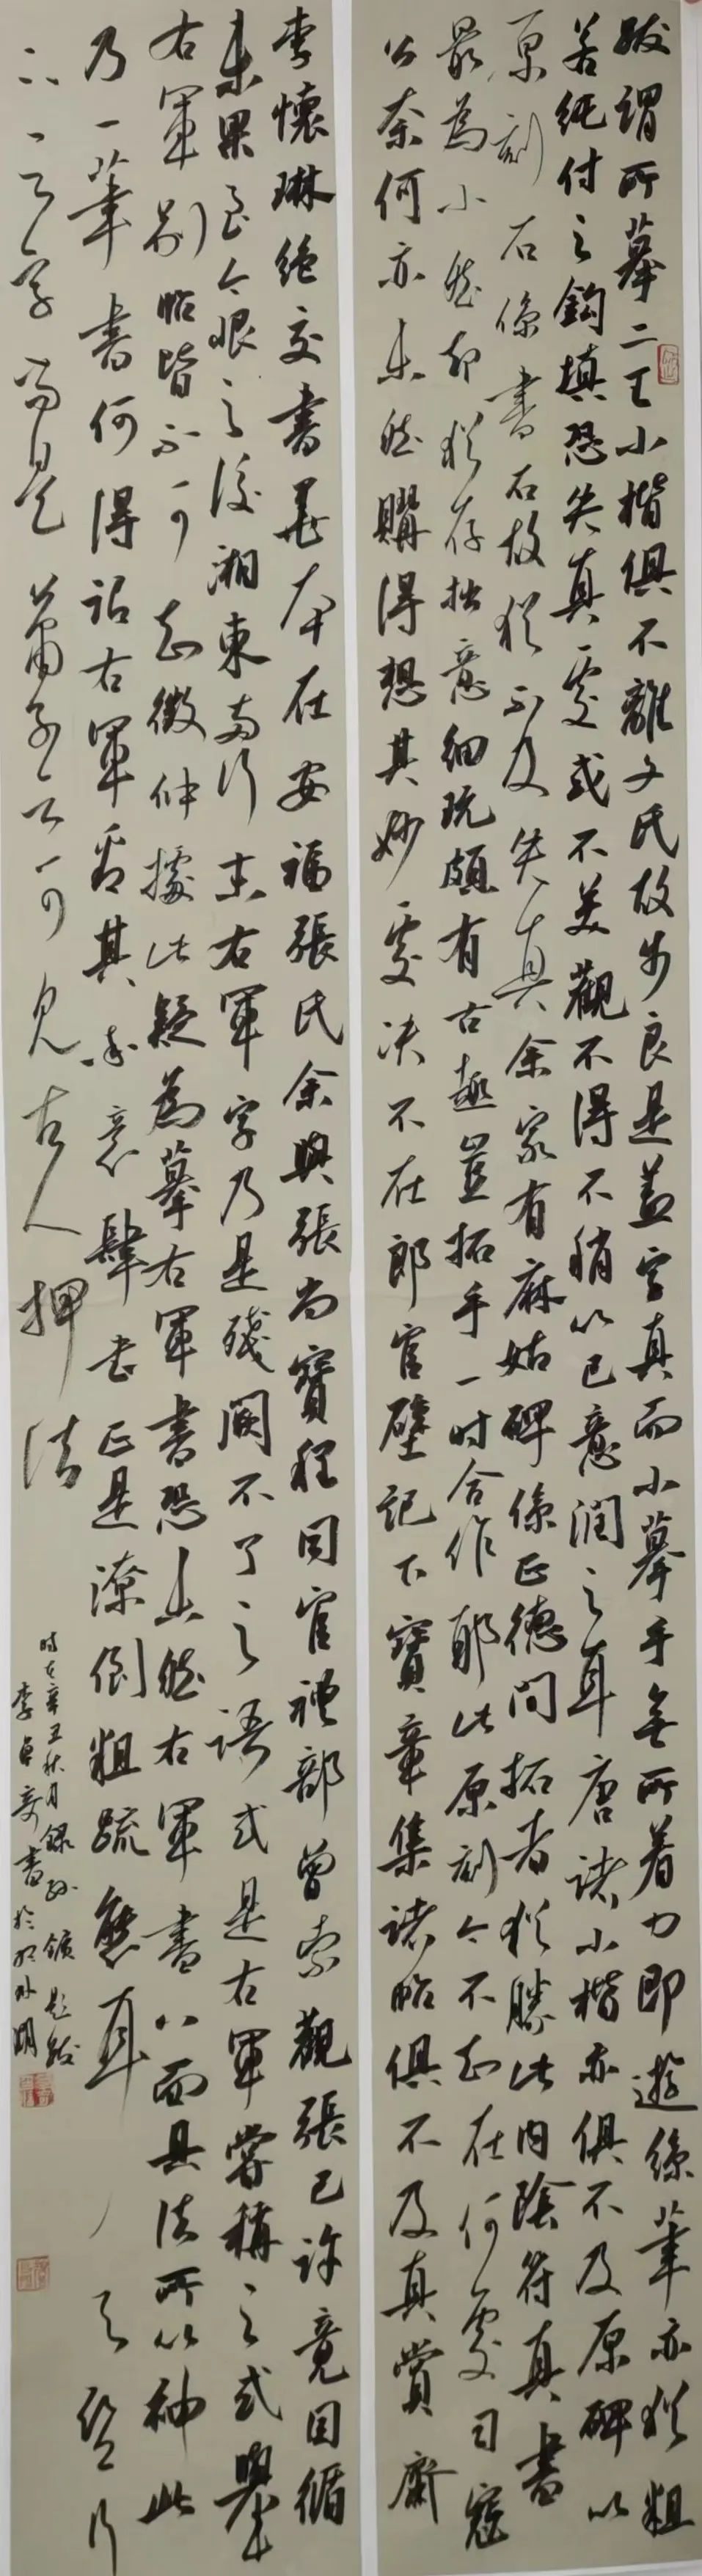 跋謂所摹二王小楷俱不離文氏故步良是蓋字真而小摹手無所着力即遊絲筆亦猶粗
若純付之鈎填恐失真處或不美觀不得不稍以己意潤之耳唐諸小楷亦俱不及原碑以
原刻石係書石故猶不及失真余家有麻姑碑係正德間拓者猶勝此内陰符真書
最為小然却猶存拙意細玩頗有古趣豈拓手一时合作耶此原刻今不知在何處司寇
公奈何亦未然購得想其妙處决不在郎官壁記下寶章集諸帖俱不及真賞齋
李懷琳絶交書墨本在安福張氏余與張尚寶程同官禮部曾索觀張已許竟因循
未果至今恨之後湘東兩行末右軍字乃是殘闕不了之語或是右軍嘗稱之或舉
右軍別帖皆不可知徵仲據此疑為摹右軍書恐未然右軍書八面具法所以神此
乃一筆書何得詁右軍看其率意肆書正是潦倒粗疏態耳
一之字當是蕭子云可見古人押法
時在辛丑秋月録孫鑛題跋
李卓奇書於